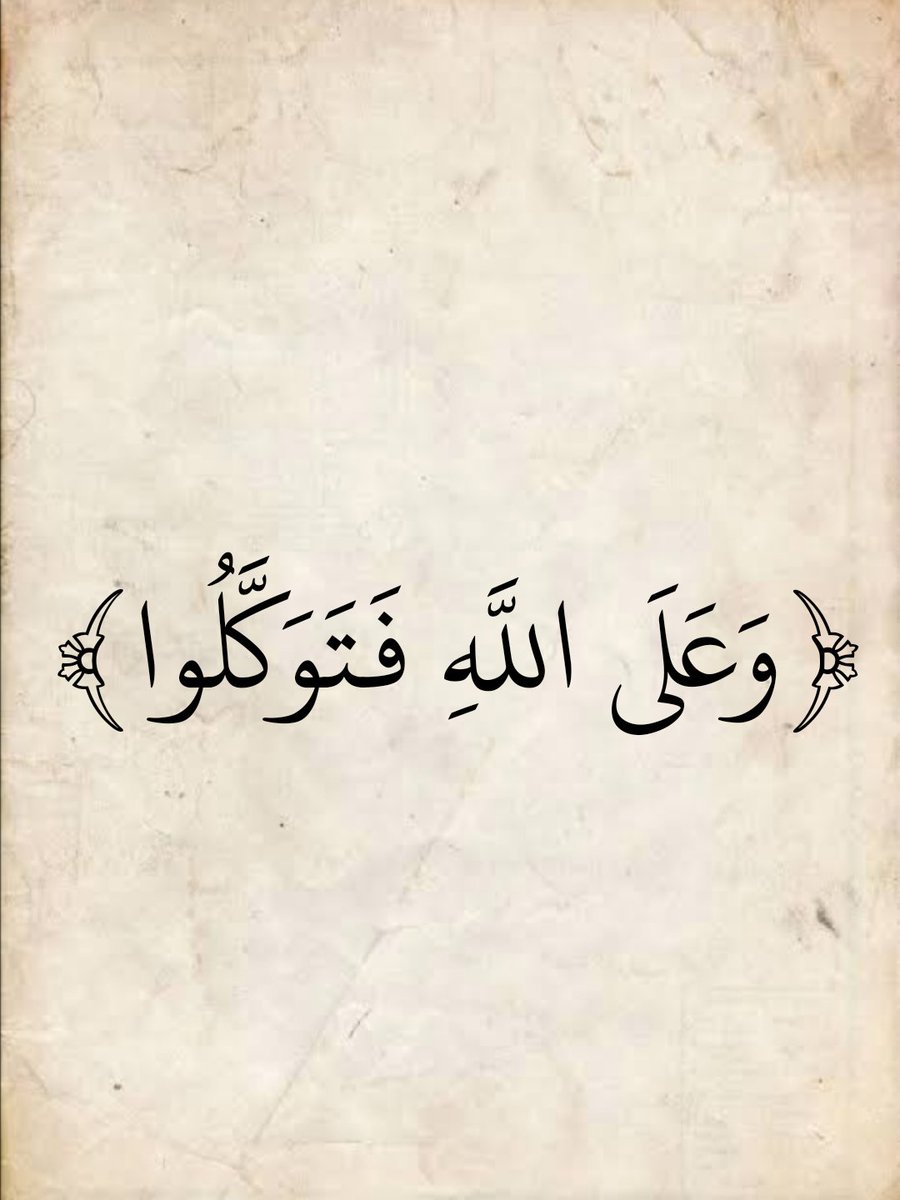 ﴿وَعَلَى اللَّهِ فَتَوَكَّلُوا﴾